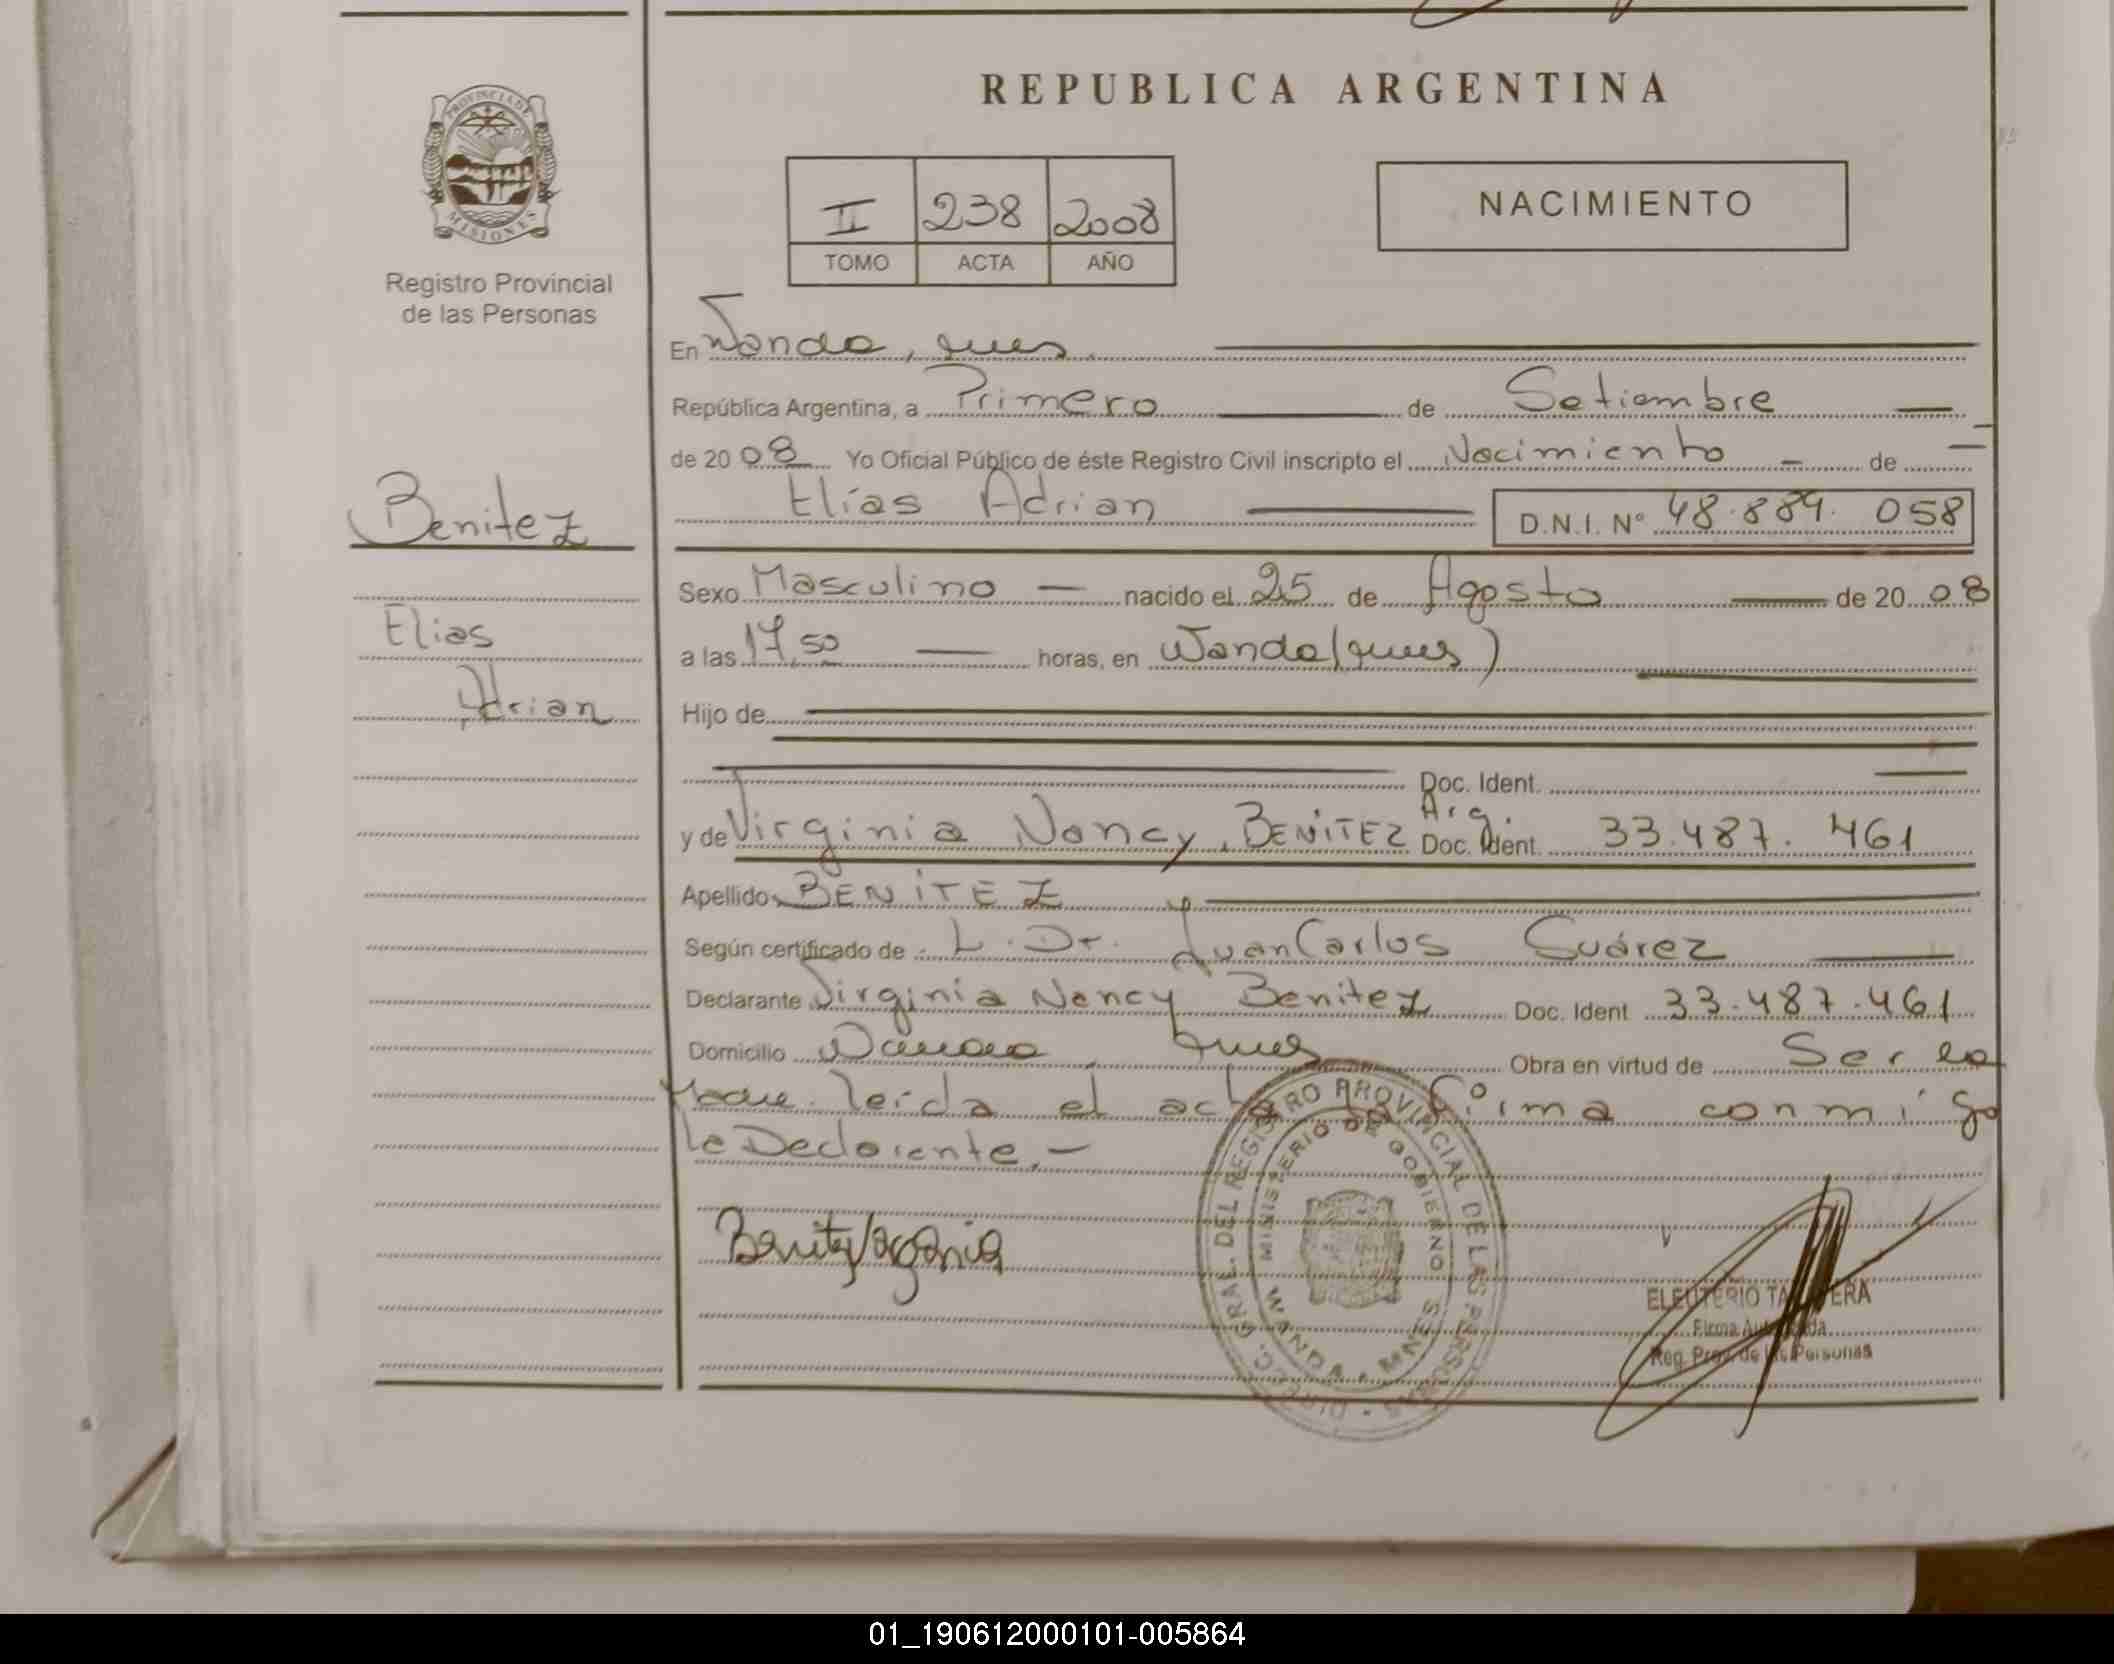 REPUBLICA ARGENTINA
PROVINCIA DE
MISIONES
Registro Provincial
de las Personas
II 238 2008
TOMO ACTA AÑO
NACIMIENTO
En Wanda, Mnes.
República Argentina, a Primero de Setiembre
de 2008 Yo Oficial Público de éste Registro Civil inscripto el Nacimiento de
Elías Adrian D.N.I. Nº 48.889.058
Benitez
Elias
Adrian
Sexo Masculino nacido el 25 de Agosto de 2008
a las 17,50 horas, en Wanda (Mnes)
Hijo de
Doc. Ident.
Arg.
y de Virginia Nancy, BENITEZ Doc. Ident. 33.487.461
Apellido BENITEZ
Según certificado de L. Dr. Juan Carlos Suárez
Declarante Virginia Nancy Benitez Doc. Ident 33.487.461
Domicilio Wanda, Mnes Obra en virtud de Ser la
Madre. leída el acta la firma conmigo
la Declarante.-
Benitez Virginia
DIREC. GRAL. DEL REGISTRO PROVINCIAL DE LAS PERSONAS
MINISTERIO DE GOBIERNO
WANDA - MNES
ELEUTERIO
Firma Autorizada
Reg. Prov. de las Personas
01_190612000101-005864